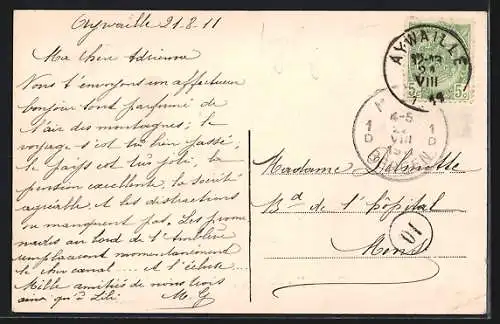 Aywaille 21-8-11
Ma chère Adrienne
Nous t'envoyons un affectueux
bonjour tout parfumé de
l'air des montagnes; le voyage
s'est très bien passé;
le pays est très joli, la
pension excellente, la société
agréable et les distractions
ne manquent pas. Les prome
nades au bord de l'Amblève
remplacent momentanément
le cher canal ... et l'écluse ...
Mille amitiés de nous trois
ainsi qu'à Lili. M. G
AYWAILLE
12-13
21
VIII
5c 5c
4-5
VIII
1 D 1 D
BERGEN
Madame
Bd de l'hôpital
Mons
10